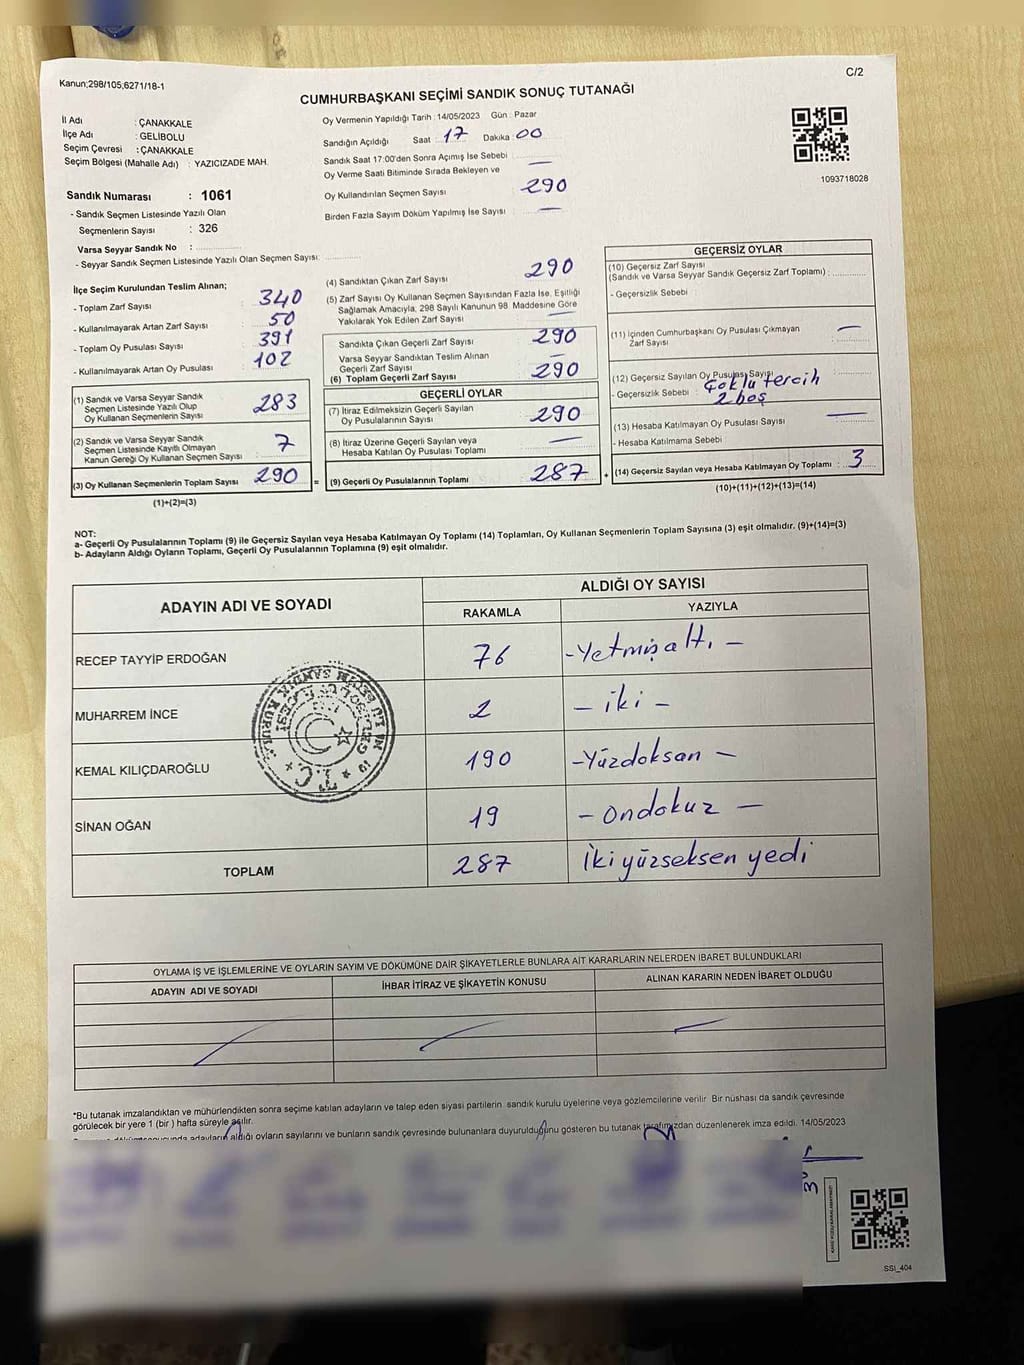 Kanun;298/105,6271/18-1
C/2
CUMHURBAŞKANI SEÇİMİ SANDIK SONUÇ TUTANAĞI
İl Adı : ÇANAKKALE
İlçe Adı : GELİBOLU
Seçim Çevresi : ÇANAKKALE
Seçim Bölgesi (Mahalle Adı) : YAZICIZADE MAH.
Sandık Numarası : 1061
- Sandık Seçmen Listesinde Yazılı Olan
Seçmenlerin Sayısı : 326
Varsa Seyyar Sandık No :
- Seyyar Sandık Seçmen Listesinde Yazılı Olan Seçmen Sayısı:
Oy Vermenin Yapıldığı Tarih : 14/05/2023 Gün : Pazar
Sandığın Açıldığı Saat : 17 Dakika : 00
Sandık Saat 17:00'den Sonra Açımış İse Sebebi : —
Oy Verme Saati Bitiminde Sırada Bekleyen ve
Oy Kullandırılan Seçmen Sayısı : 290
Birden Fazla Sayım Döküm Yapılmış İse Sayısı : —
1093718028
İlçe Seçim Kurulundan Teslim Alınan;
- Toplam Zarf Sayısı : 340
- Kullanılmayarak Artan Zarf Sayısı : 50
- Toplam Oy Pusulası Sayısı : 391
- Kullanılmayarak Artan Oy Pusulası : 102
(1) Sandık ve Varsa Seyyar Sandık
Seçmen Listesinde Yazılı Olup
Oy Kullanan Seçmenlerin Sayısı : 283
(2) Sandık ve Varsa Seyyar Sandık
Seçmen Listesinde Kayıtlı Olmayan
Kanun Gereği Oy Kullanan Seçmen Sayısı : 7
(3) Oy Kullanan Seçmenlerin Toplam Sayısı : 290
(1)+(2)=(3)
(4) Sandıktan Çıkan Zarf Sayısı : 290
(5) Zarf Sayısı Oy Kullanan Seçmen Sayısından Fazla İse, Eşitliği
Sağlamak Amacıyla, 298 Sayılı Kanunun 98. Maddesine Göre
Yakılarak Yok Edilen Zarf Sayısı : —
Sandıkta Çıkan Geçerli Zarf Sayısı : 290
Varsa Seyyar Sandıktan Teslim Alınan
Geçerli Zarf Sayısı : —
(6) Toplam Geçerli Zarf Sayısı : 290
GEÇERLİ OYLAR
(7) İtiraz Edilmeksizin Geçerli Sayılan
Oy Pusulalarının Sayısı : 290
(8) İtiraz Üzerine Geçerli Sayılan veya
Hesaba Katılan Oy Pusulası Toplamı : —
= (9) Geçerli Oy Pusulalarının Toplamı : 287
GEÇERSİZ OYLAR
(10) Geçersiz Zarf Sayısı
(Sandık ve Varsa Seyyar Sandık Geçersiz Zarf Toplamı) :
- Geçersizlik Sebebi :
(11) İçinden Cumhurbaşkanı Oy Pusulası Çıkmayan
Zarf Sayısı : —
(12) Geçersiz Sayılan Oy Pusulası Sayısı
- Geçersizlik Sebebi : Çoklu tercih
2 boş
(13) Hesaba Katılmayan Oy Pusulası Sayısı : —
- Hesaba Katılmama Sebebi
+ (14) Geçersiz Sayılan veya Hesaba Katılmayan Oy Toplamı : 3
(10)+(11)+(12)+(13)=(14)
NOT:
a- Geçerli Oy Pusulalarının Toplamı (9) ile Geçersiz Sayılan veya Hesaba Katılmayan Oy Toplamı (14) Toplamları, Oy Kullanan Seçmenlerin Toplam Sayısına (3) eşit olmalıdır. (9)+(14)=(3)
b- Adayların Aldığı Oyların Toplamı, Geçerli Oy Pusulalarının Toplamına (9) eşit olmalıdır.
ADAYIN ADI VE SOYADI
ALDIĞI OY SAYISI
RAKAMLA YAZIYLA
RECEP TAYYİP ERDOĞAN 76 -Yetmişaltı -
MUHARREM İNCE 2 - iki -
KEMAL KILIÇDAROĞLU 190 -Yüzdoksan -
SİNAN OĞAN 19 - Ondokuz -
TOPLAM 287 İkiyüzseksen yedi
T.C.
OYLAMA İŞ VE İŞLEMLERİNE VE OYLARIN SAYIM VE DÖKÜMÜNE DAİR ŞİKAYETLERLE BUNLARA AİT KARARLARIN NELERDEN İBARET BULUNDUKLARI
ADAYIN ADI VE SOYADI İHBAR İTİRAZ VE ŞİKAYETİN KONUSU ALINAN KARARIN NEDEN İBARET OLDUĞU
*Bu tutanak imzalandıktan ve mühürlendikten sonra seçime katılan adayların ve talep eden siyasi partilerin sandık kurulu üyelerine veya gözlemcilerine verilir. Bir nüshası da sandık çevresinde
görülecek bir yere 1 (bir ) hafta süreyle asılır.
adayların aldığı oyların sayılarını ve bunların sandık çevresinde bulunanlara duyurulduğunu gösteren bu tutanak tarafımızdan düzenlenerek imza edildi. 14/05/2023
SSI_404